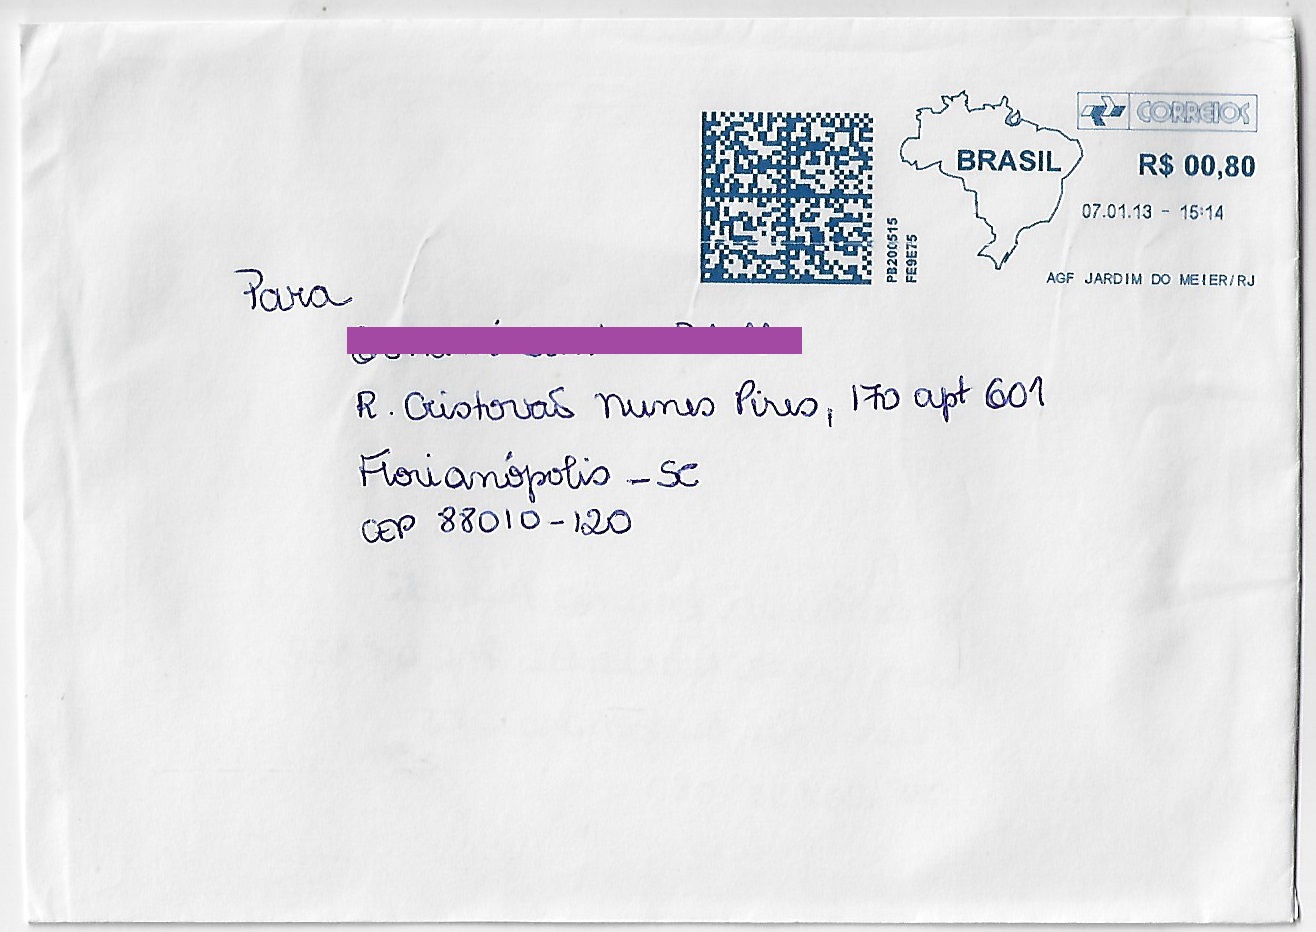 CORREIOS
BRASIL
R$ 00,80
07.01.13 - 15:14
PB200515
FE9E75
AGF JARDIM DO MEIER/RJ
Para
R. Cristovão Nunes Pires, 170 apt 601
Florianópolis - SC
CEP 88010-120